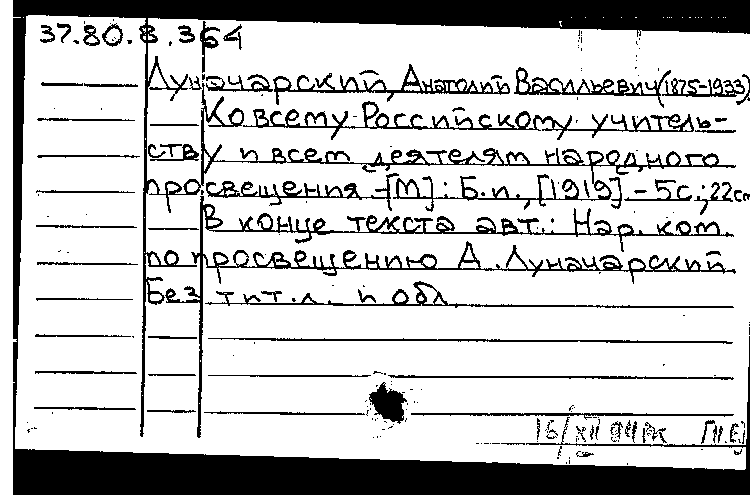 37.80.8.364
Луначарский, Анатолий Васильевич (1875-1933)
Ко всему Российскому учитель-
ству и всем деятелям народного
просвещения -[М]: Б.и., [1919] - 5с.; 22см
В конце текста авт.: Нар. ком.
по просвещению А. Луначарский.
Без тит.л. и обл.
16/XII